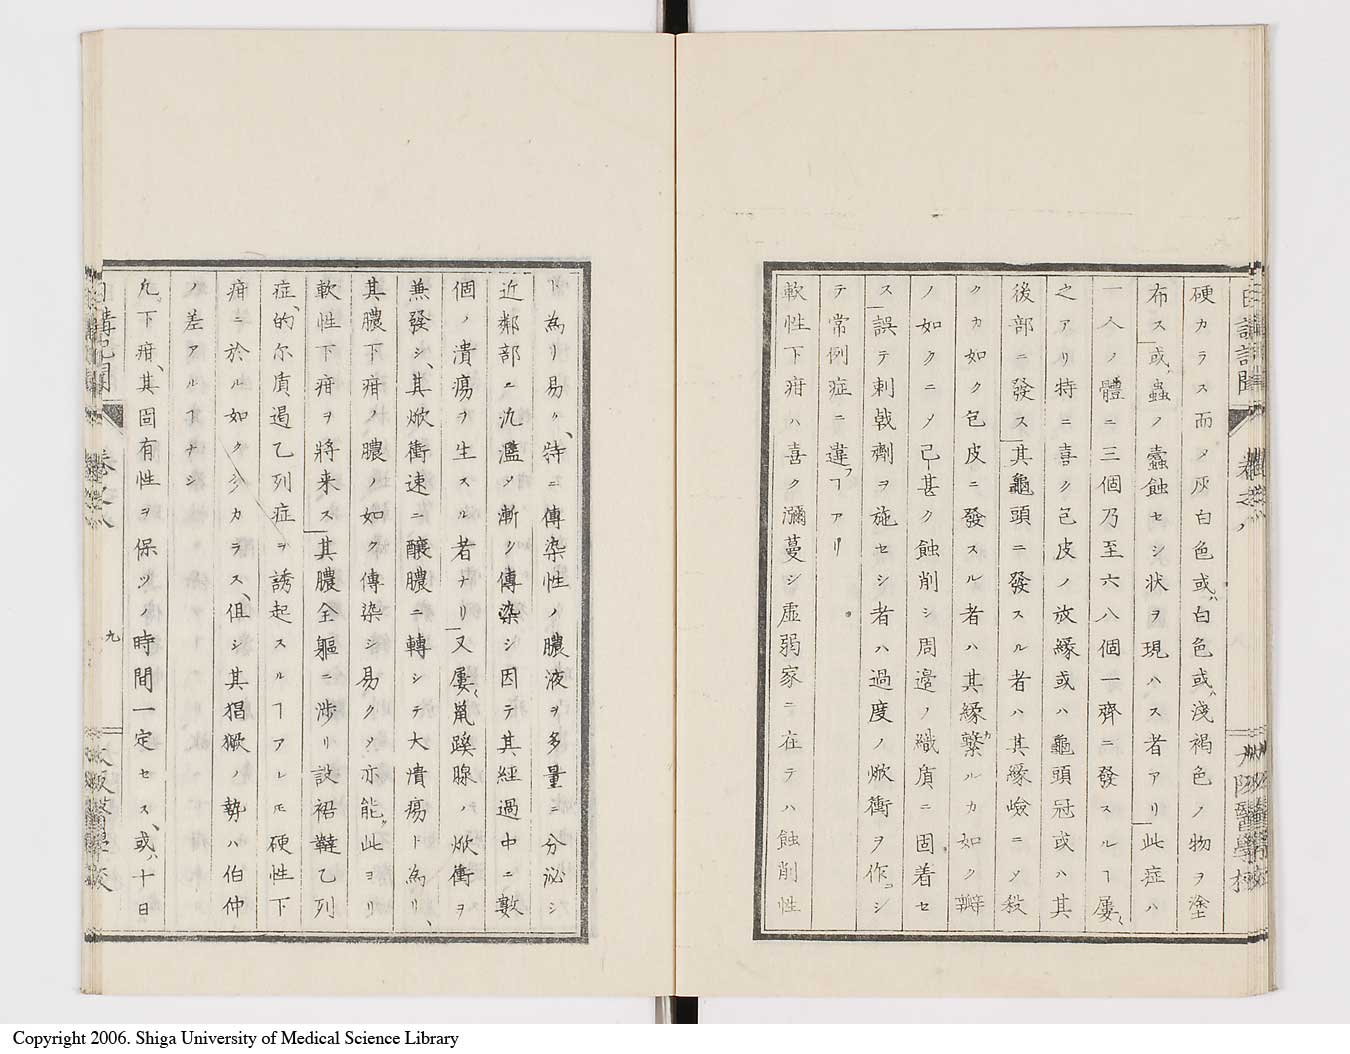 硬カラス而メ灰白色或ハ白色或ハ淺褐色ノ物ヲ塗
布ス或ハ蟲ノ蠹蝕セシ状ヲ現ハス者アリ此症ハ
一人ノ體ニ三個乃至六八個一齊ニ發スルヿ屢々
之アリ特ニ喜ク包皮ノ放縁或ハ龜頭冠或ハ其
後部ニ發ス其龜頭ニ發スル者ハ其縁嶮ニメ殺
クカ如ク包皮ニ發スル者ハ其縁繫ルカ如ク瓣
ノ如クニメ已甚ク蝕削シ周邉ノ織質ニ固着セ
ス誤テ刺戟劑ヲ施セシ者ハ過度ノ焮衝ヲ作コシ
テ常例症ニ違フヿアリ
軟性下疳ハ喜ク瀰蔓シ虚弱家ニ在テハ蝕削性
ト為リ易ク特ニ傳染性ノ膿液ヲ多量ニ分泌シ
近鄰部ニ氿濫メ漸ク傳染シ因テ其經過中ニ數
個ノ潰瘍ヲ生スル者ナリ又屢々鼠蹊腺ノ焮衝ヲ
兼發シ其焮衝速ニ醸膿ニ轉シテ大潰瘍ト為リ
其膿下疳ノ膿ノ如ク傳染シ易クメ亦能ク此ヨリ
軟性下疳ヲ將来ス其膿全軀ニ渉リ設褶韃乙列
症的尓質過乙列症ヲ誘起スルヿアレモ硬性下
疳ニ於ル如ク多カラス但シ其猖獗ノ勢ハ伯仲
ノ差アルヿナシ
凢下疳其固有性ヲ保ツノ時間一定セス或ハ十日
日講記聞
卷之八
九
大阪醫學校